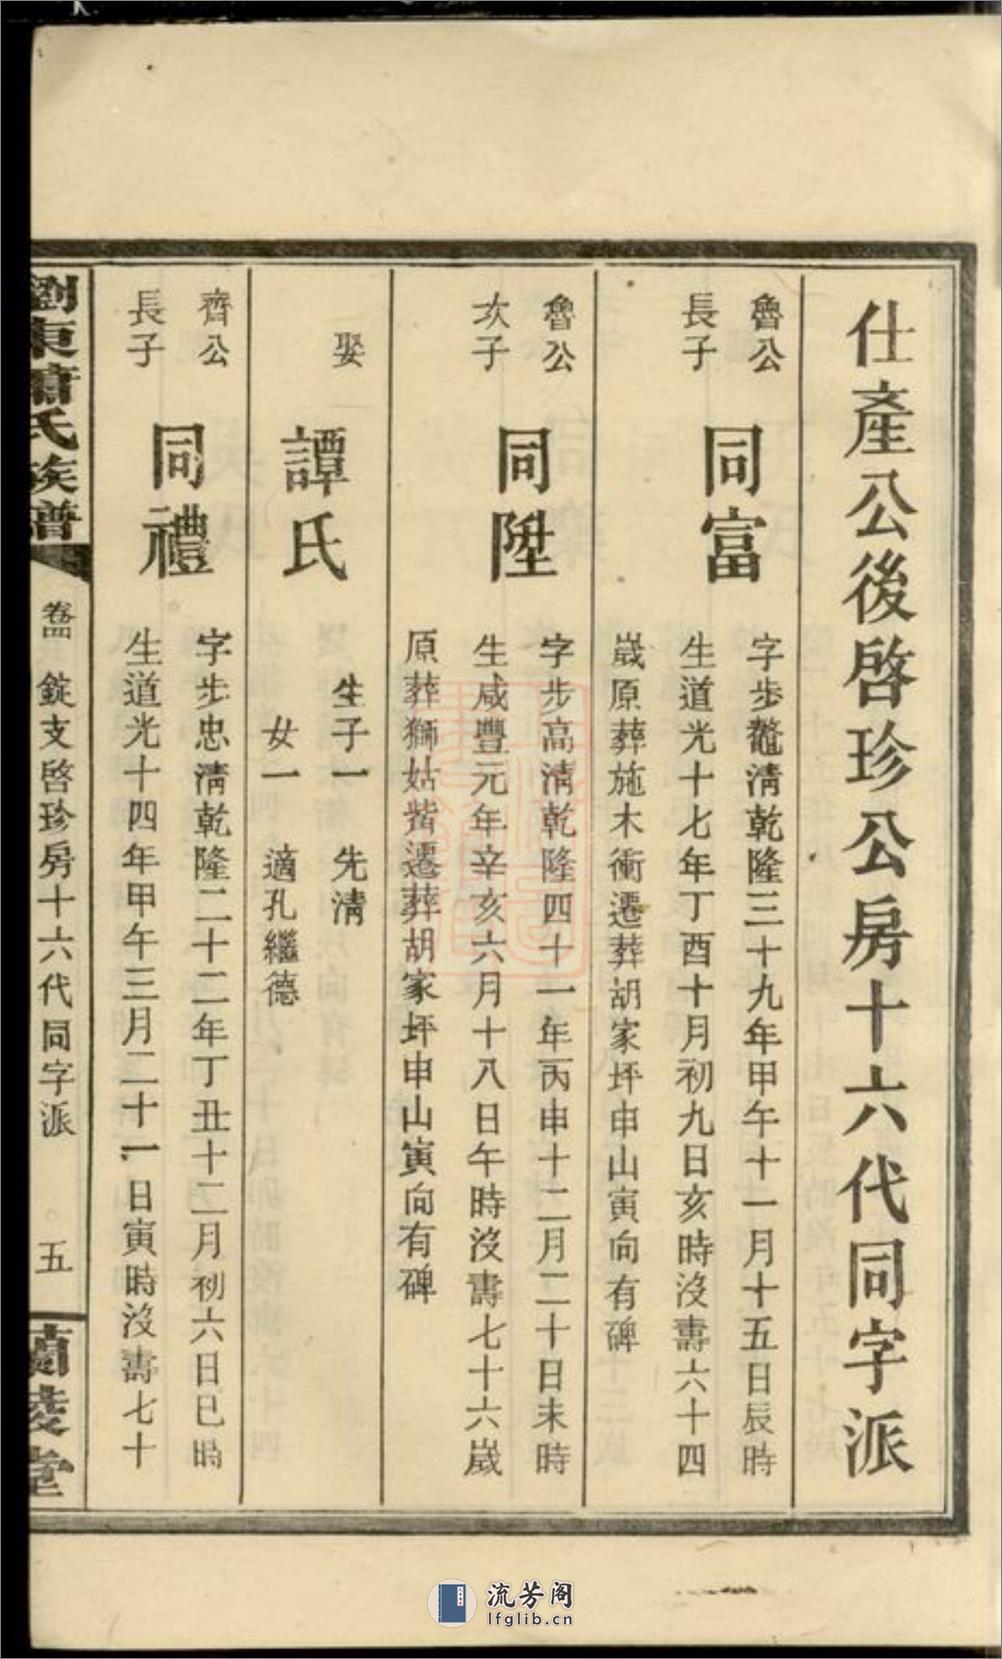 仕產公後啓珍公房十六代同字派
魯公
長子
同富
字步鼇清乾隆三十九年甲午十一月十五日辰時
生道光十七年丁酉十月初九日亥時沒壽六十四
歲原葬施木衝遷葬胡家坪申山寅向有碑
魯公
次子
同陞
字步高清乾隆四十一年丙申十二月二十日未時
生咸豐元年辛亥六月十八日午時沒壽七十六歲
原葬獅姑塘遷葬胡家坪申山寅向有碑
娶
譚氏
生子一 先清
女一 適孔繼德
齊公
長子
同禮
字步忠清乾隆二十二年丁丑十二月初六日巳時
生道光十四年甲午三月二十一日寅時沒壽七十
劉東蕭氏族譜
卷四 錠支啓珍房十六代同字派 五
蘭陵堂
流芳阁
lfglib.cn